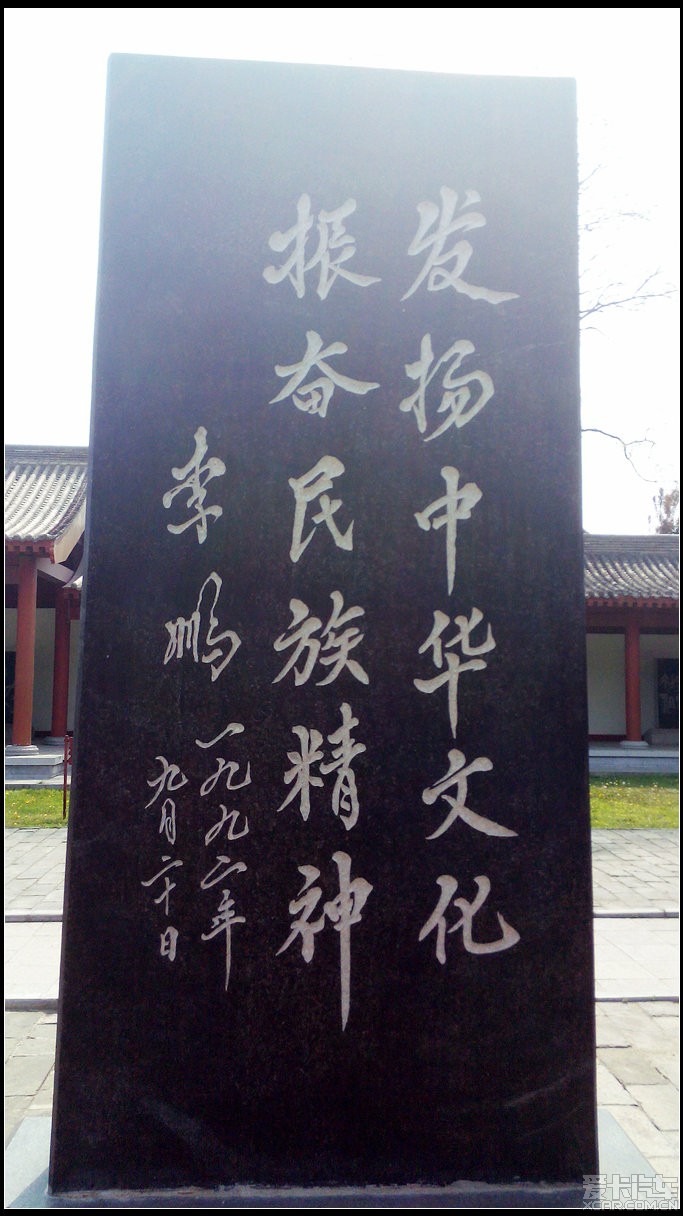 发扬中华文化
振奋民族精神
李鹏
一九九二年
九月二十日
爱卡汽车
XCAR.COM.CN